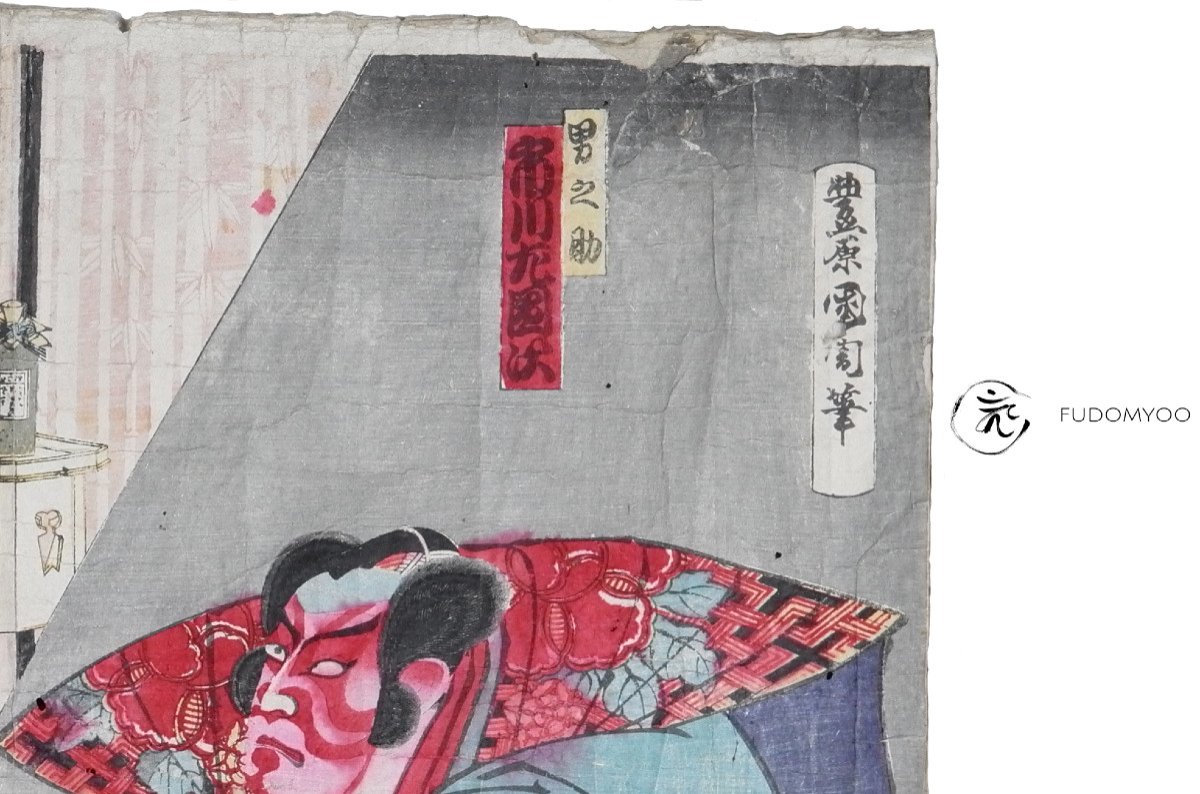 豊原國周筆
男之助
市川左團次
FUDOMYOO